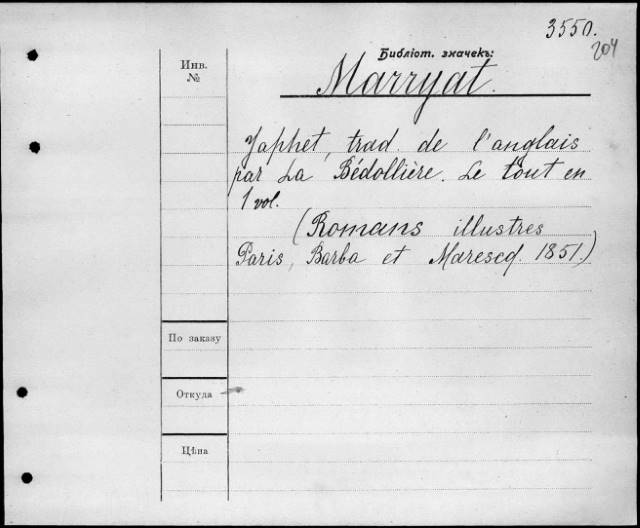 3550.
204
Библіот. значекъ:
Marryat.
Инв.
№
Japhet, trad. de l'anglais
par La Bédollière. Le tout en
1 vol.
(Romans illustres
Paris, Barba et Marescq. 1851.)
По заказу
Откуда
Цѣна